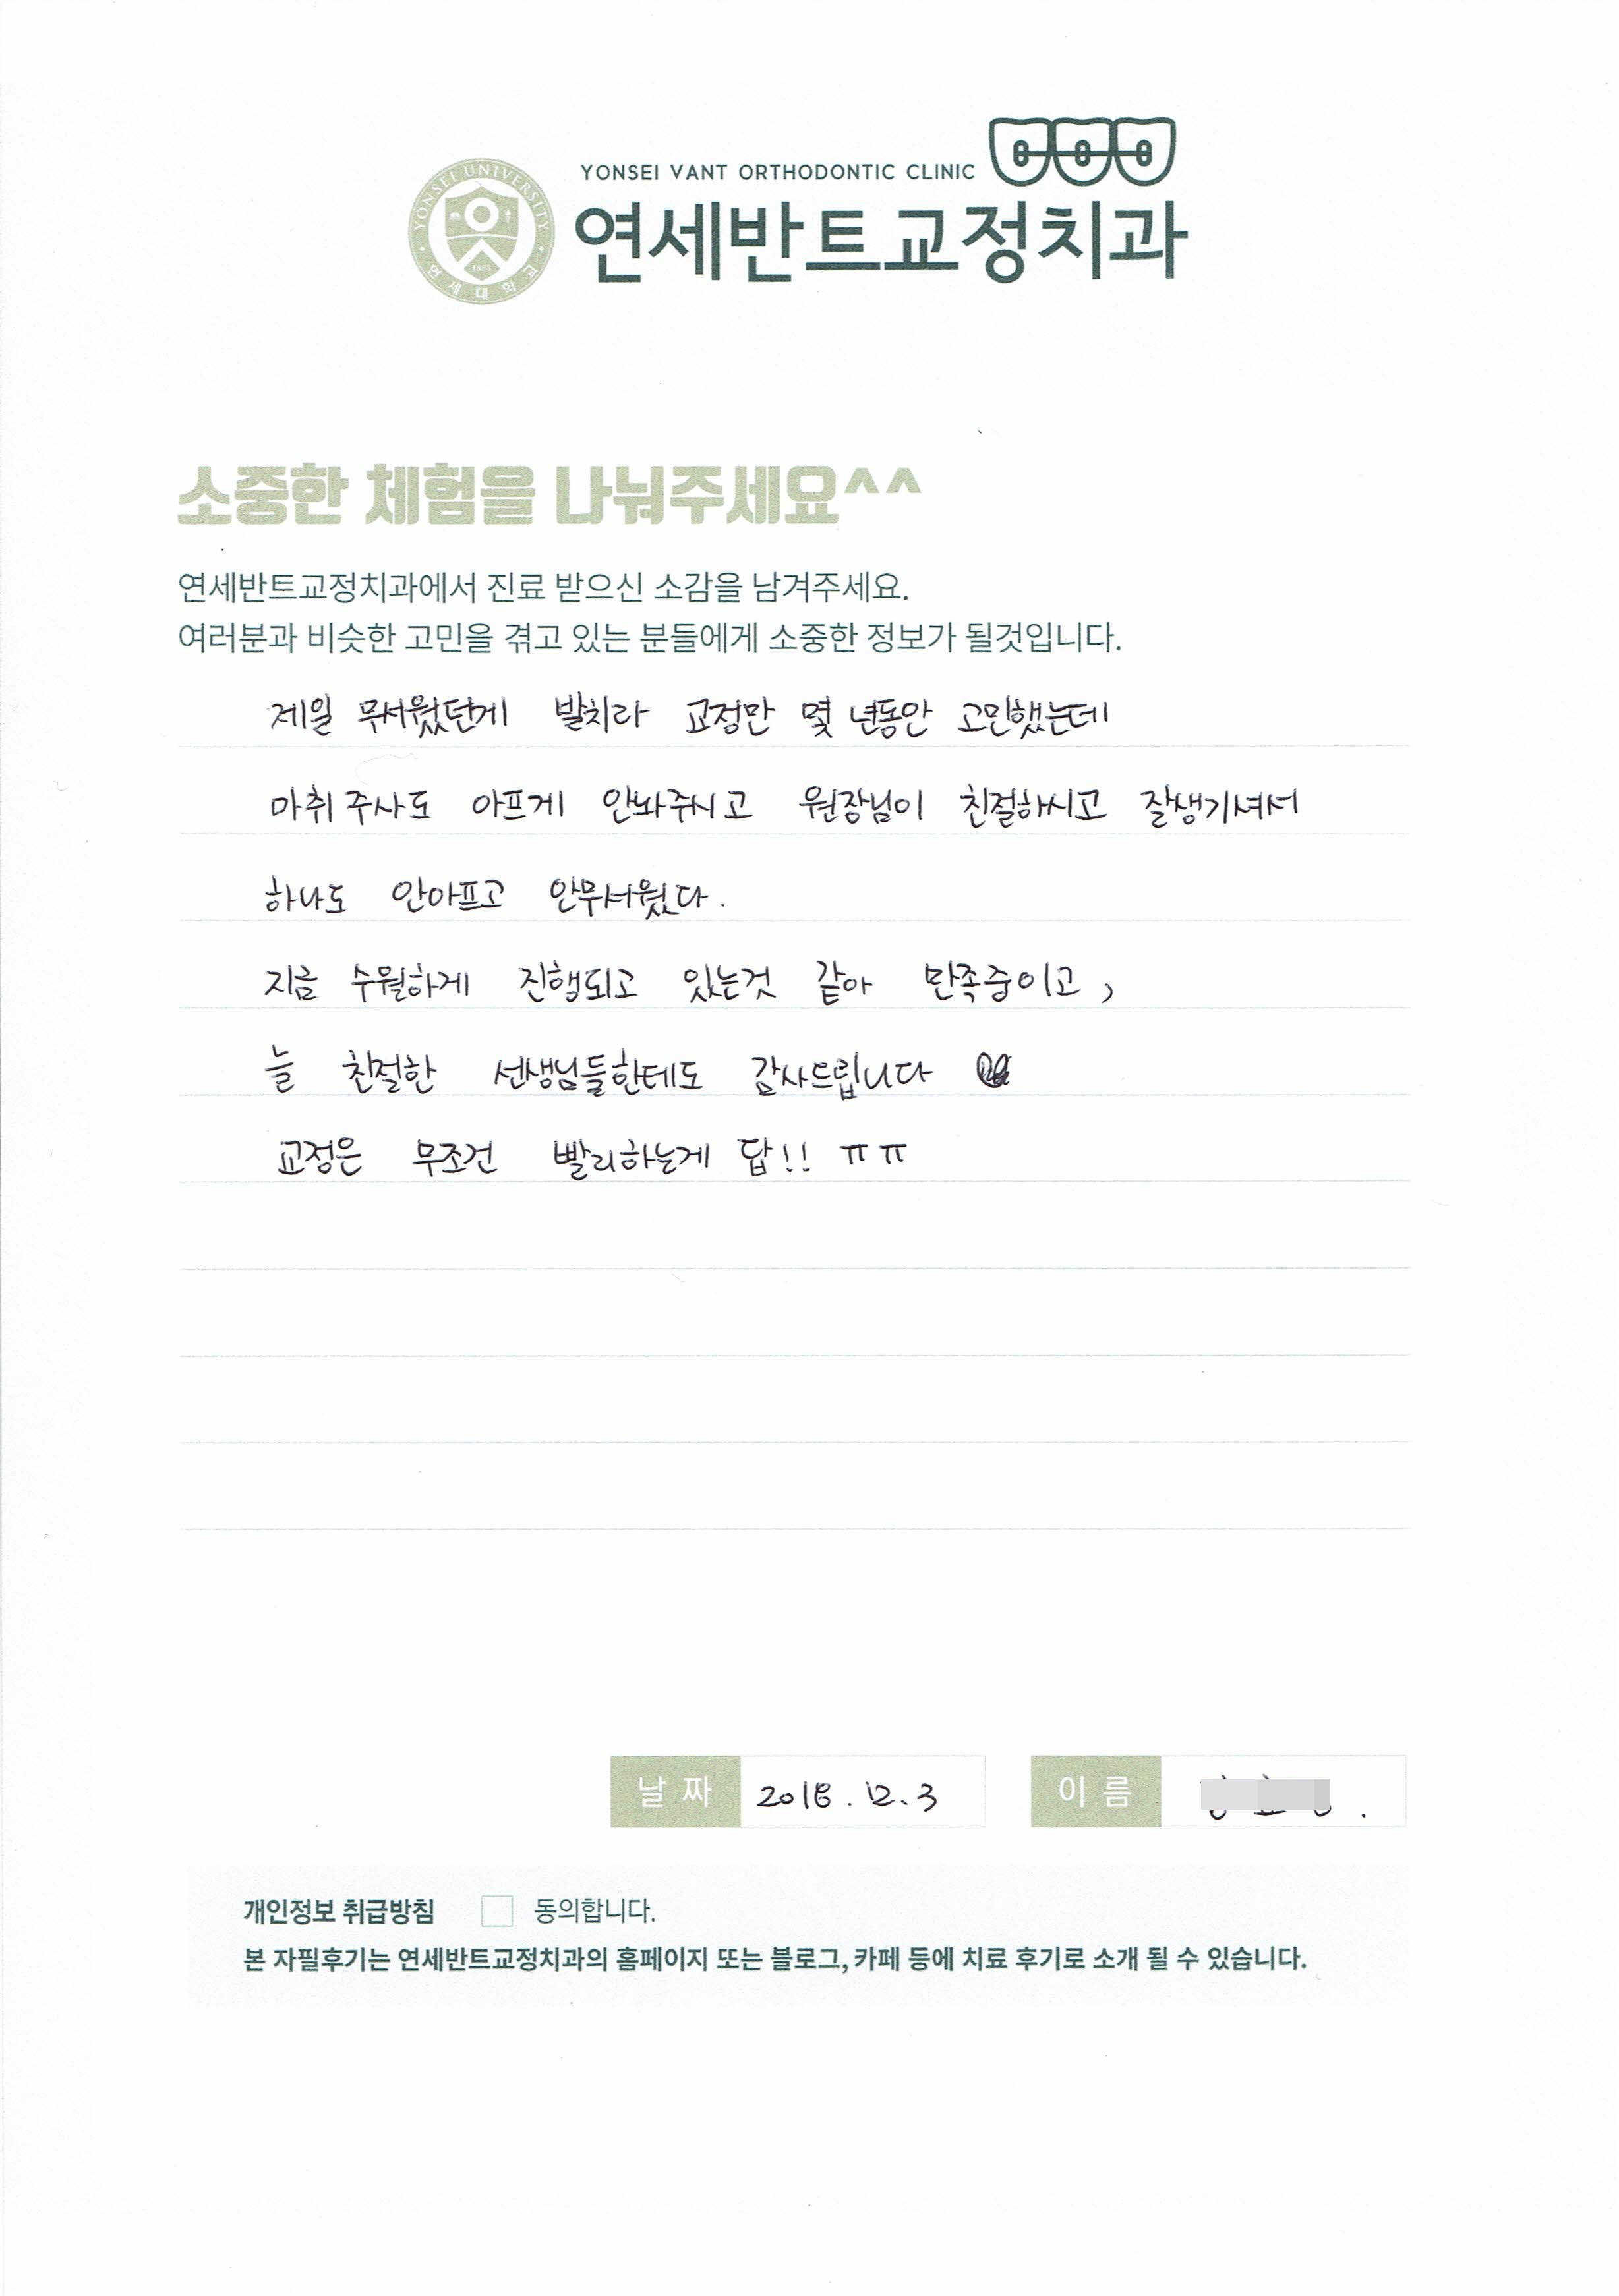 YONSEI VANT ORTHODONTIC CLINIC
YONSEI UNIVERSITY
1885
연세대학교
연세반트교정치과
소중한 체험을 나눠주세요^^
연세반트교정치과에서 진료 받으신 소감을 남겨주세요.
여러분과 비슷한 고민을 겪고 있는 분들에게 소중한 정보가 될것입니다.
제일 무서웠던게 발치라 교정만 몇 년동안 고민했는데
마취 주사도 아프게 안놔주시고 원장님이 친절하시고 잘생기셔서
하나도 안아프고 안무서웠다.
지금 수월하게 진행되고 있는것 같아 만족중이고,
늘 친절한 선생님들한테도 감사드립니다
교정은 무조건 빨리하는게 답!! ㅠㅠ
날 짜 2018.12.3 이 름
개인정보 취급방침 동의합니다.
본 자필후기는 연세반트교정치과의 홈페이지 또는 블로그, 카페 등에 치료 후기로 소개 될 수 있습니다.